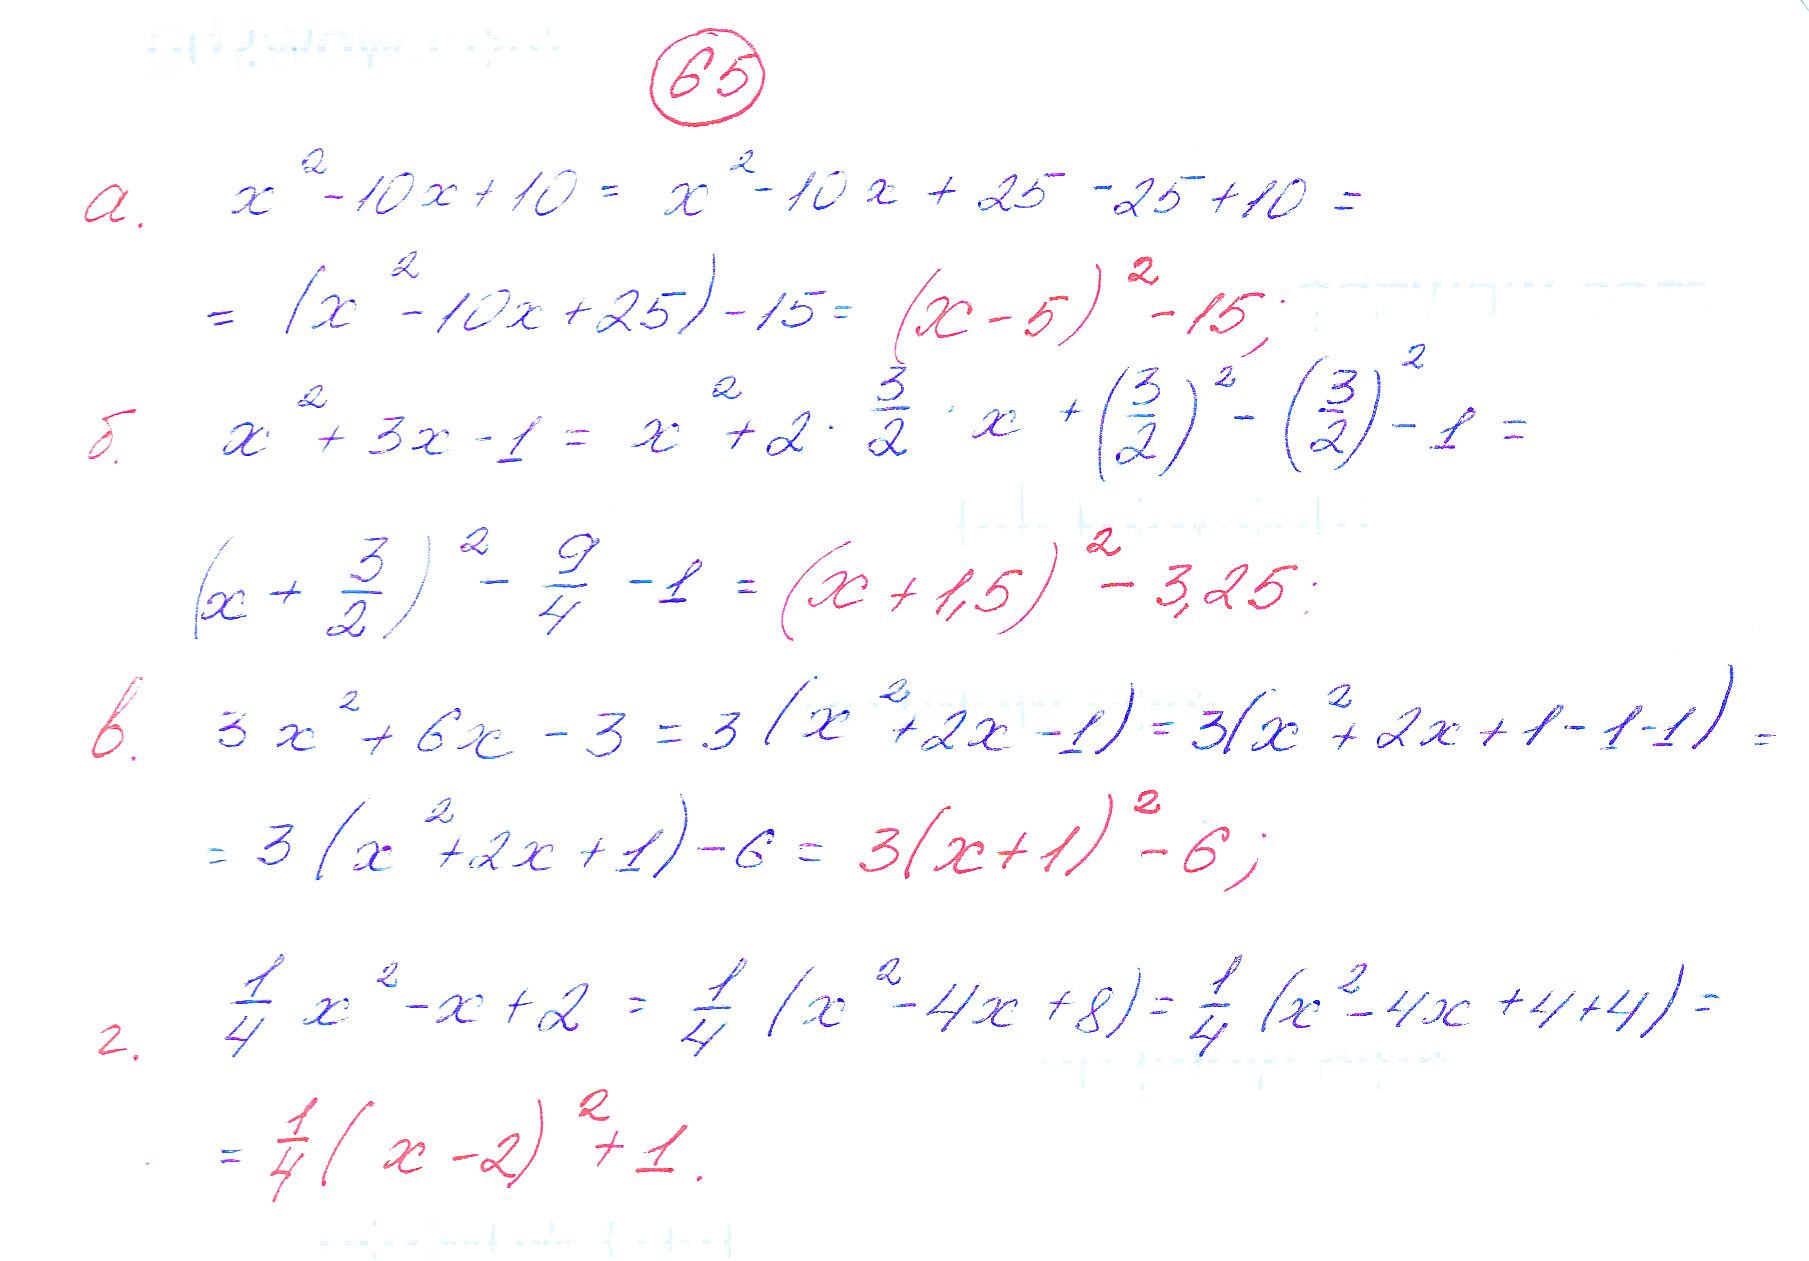 65
а. x² - 10x + 10 = x² - 10x + 25 - 25 + 10 =
= (x² - 10x + 25) - 15 = (x - 5)² - 15;
б. x² + 3x - 1 = x² + 2 · 3/2 · x + (3/2)² - (3/2)² - 1 =
(x + 3/2)² - 9/4 - 1 = (x + 1,5)² - 3,25;
в. 3x² + 6x - 3 = 3(x² + 2x - 1) = 3(x² + 2x + 1 - 1 - 1) =
= 3(x² + 2x + 1) - 6 = 3(x + 1)² - 6;
г. 1/4 x² - x + 2 = 1/4 (x² - 4x + 8) = 1/4 (x² - 4x + 4 + 4) =
= 1/4 (x - 2)² + 1.